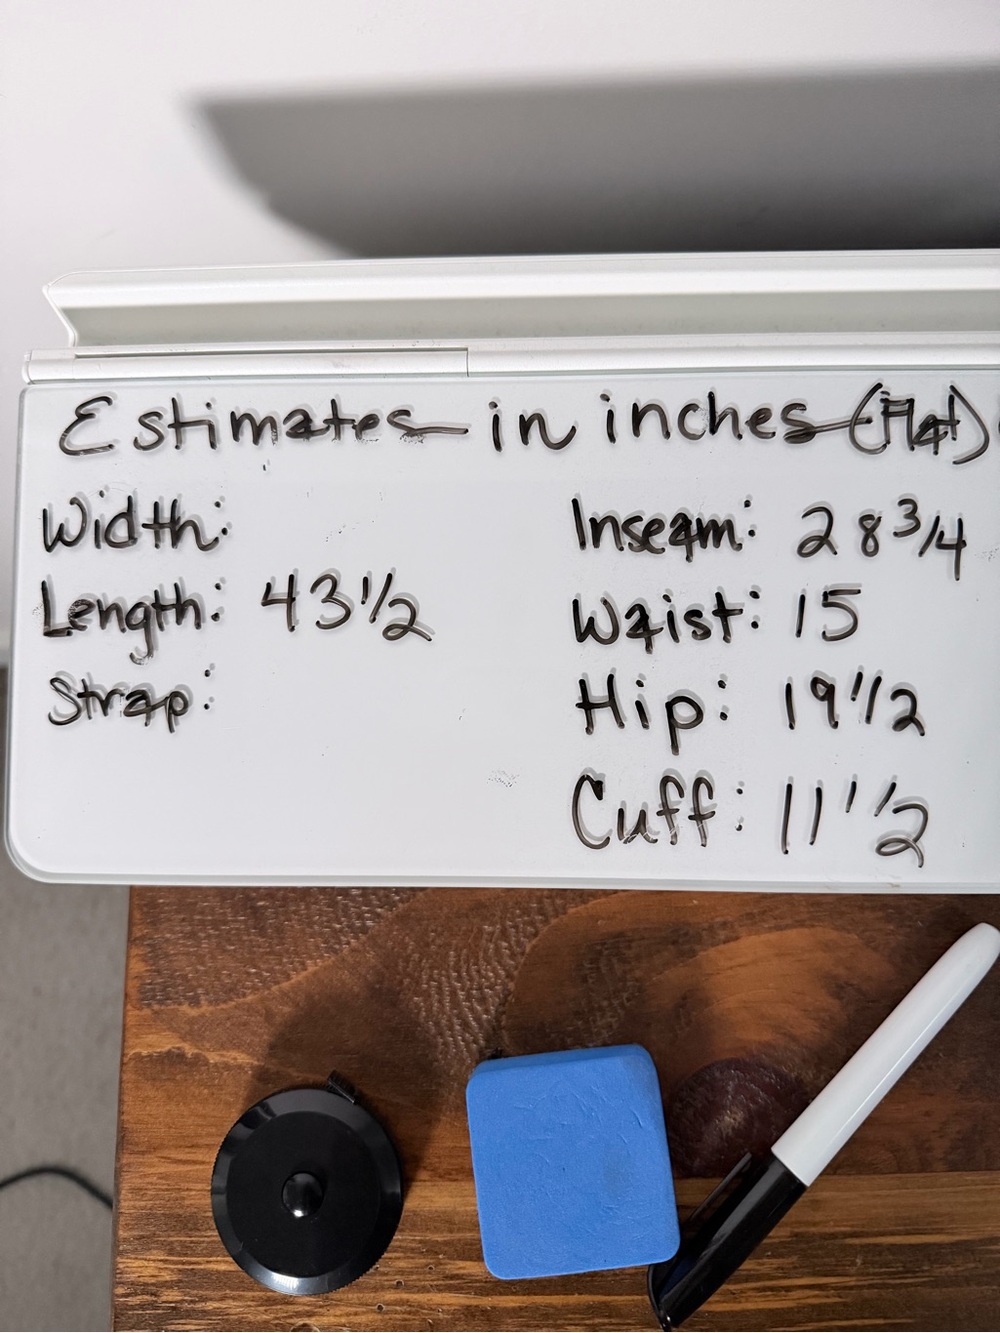 Estimates in inches (Flat)
Width:
Length: 43 1/2
Strap:
Inseam: 28 3/4
Waist: 15
Hip: 19 1/2
Cuff: 11 1/2